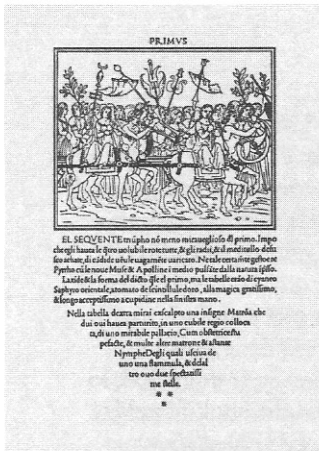 PRIMVS
EL SEQVENTE triũpho nõ meno miraueglioso dl primo. Impo
che egli hauea le q̃tro uolubile rote tutte, & gli radii, & il meditullo defu
sco achate, di cãdide uẽule uagamẽte uaricato. Ne tale certamẽte gestoe re
Pyrrho cũ le noue Muse & Apolline ĩ medio pulsãte dalla natura ĩpsso.
Laxide & la forma del dicto q̃le el primo, ma le tabelle erão di cyaneo
Saphyro orientale, atomato de scintillule doro, alla magica gratissimo,
& longo acceptissimo a cupidine nella sinistra mano.
Nella tabella dextra mirai exscalpto una insigne Matrõa che
dui oui hauea parturito, in uno cubile regio colloca
ta, di uno mirabile pallacio, Cum obstetrice stu
pefacte, & multe altre matrone & astante
Nymphe Degli quali usciua de
uno una flammula, & delal
tro ouo due spectatissi
me stelle.
* *
*